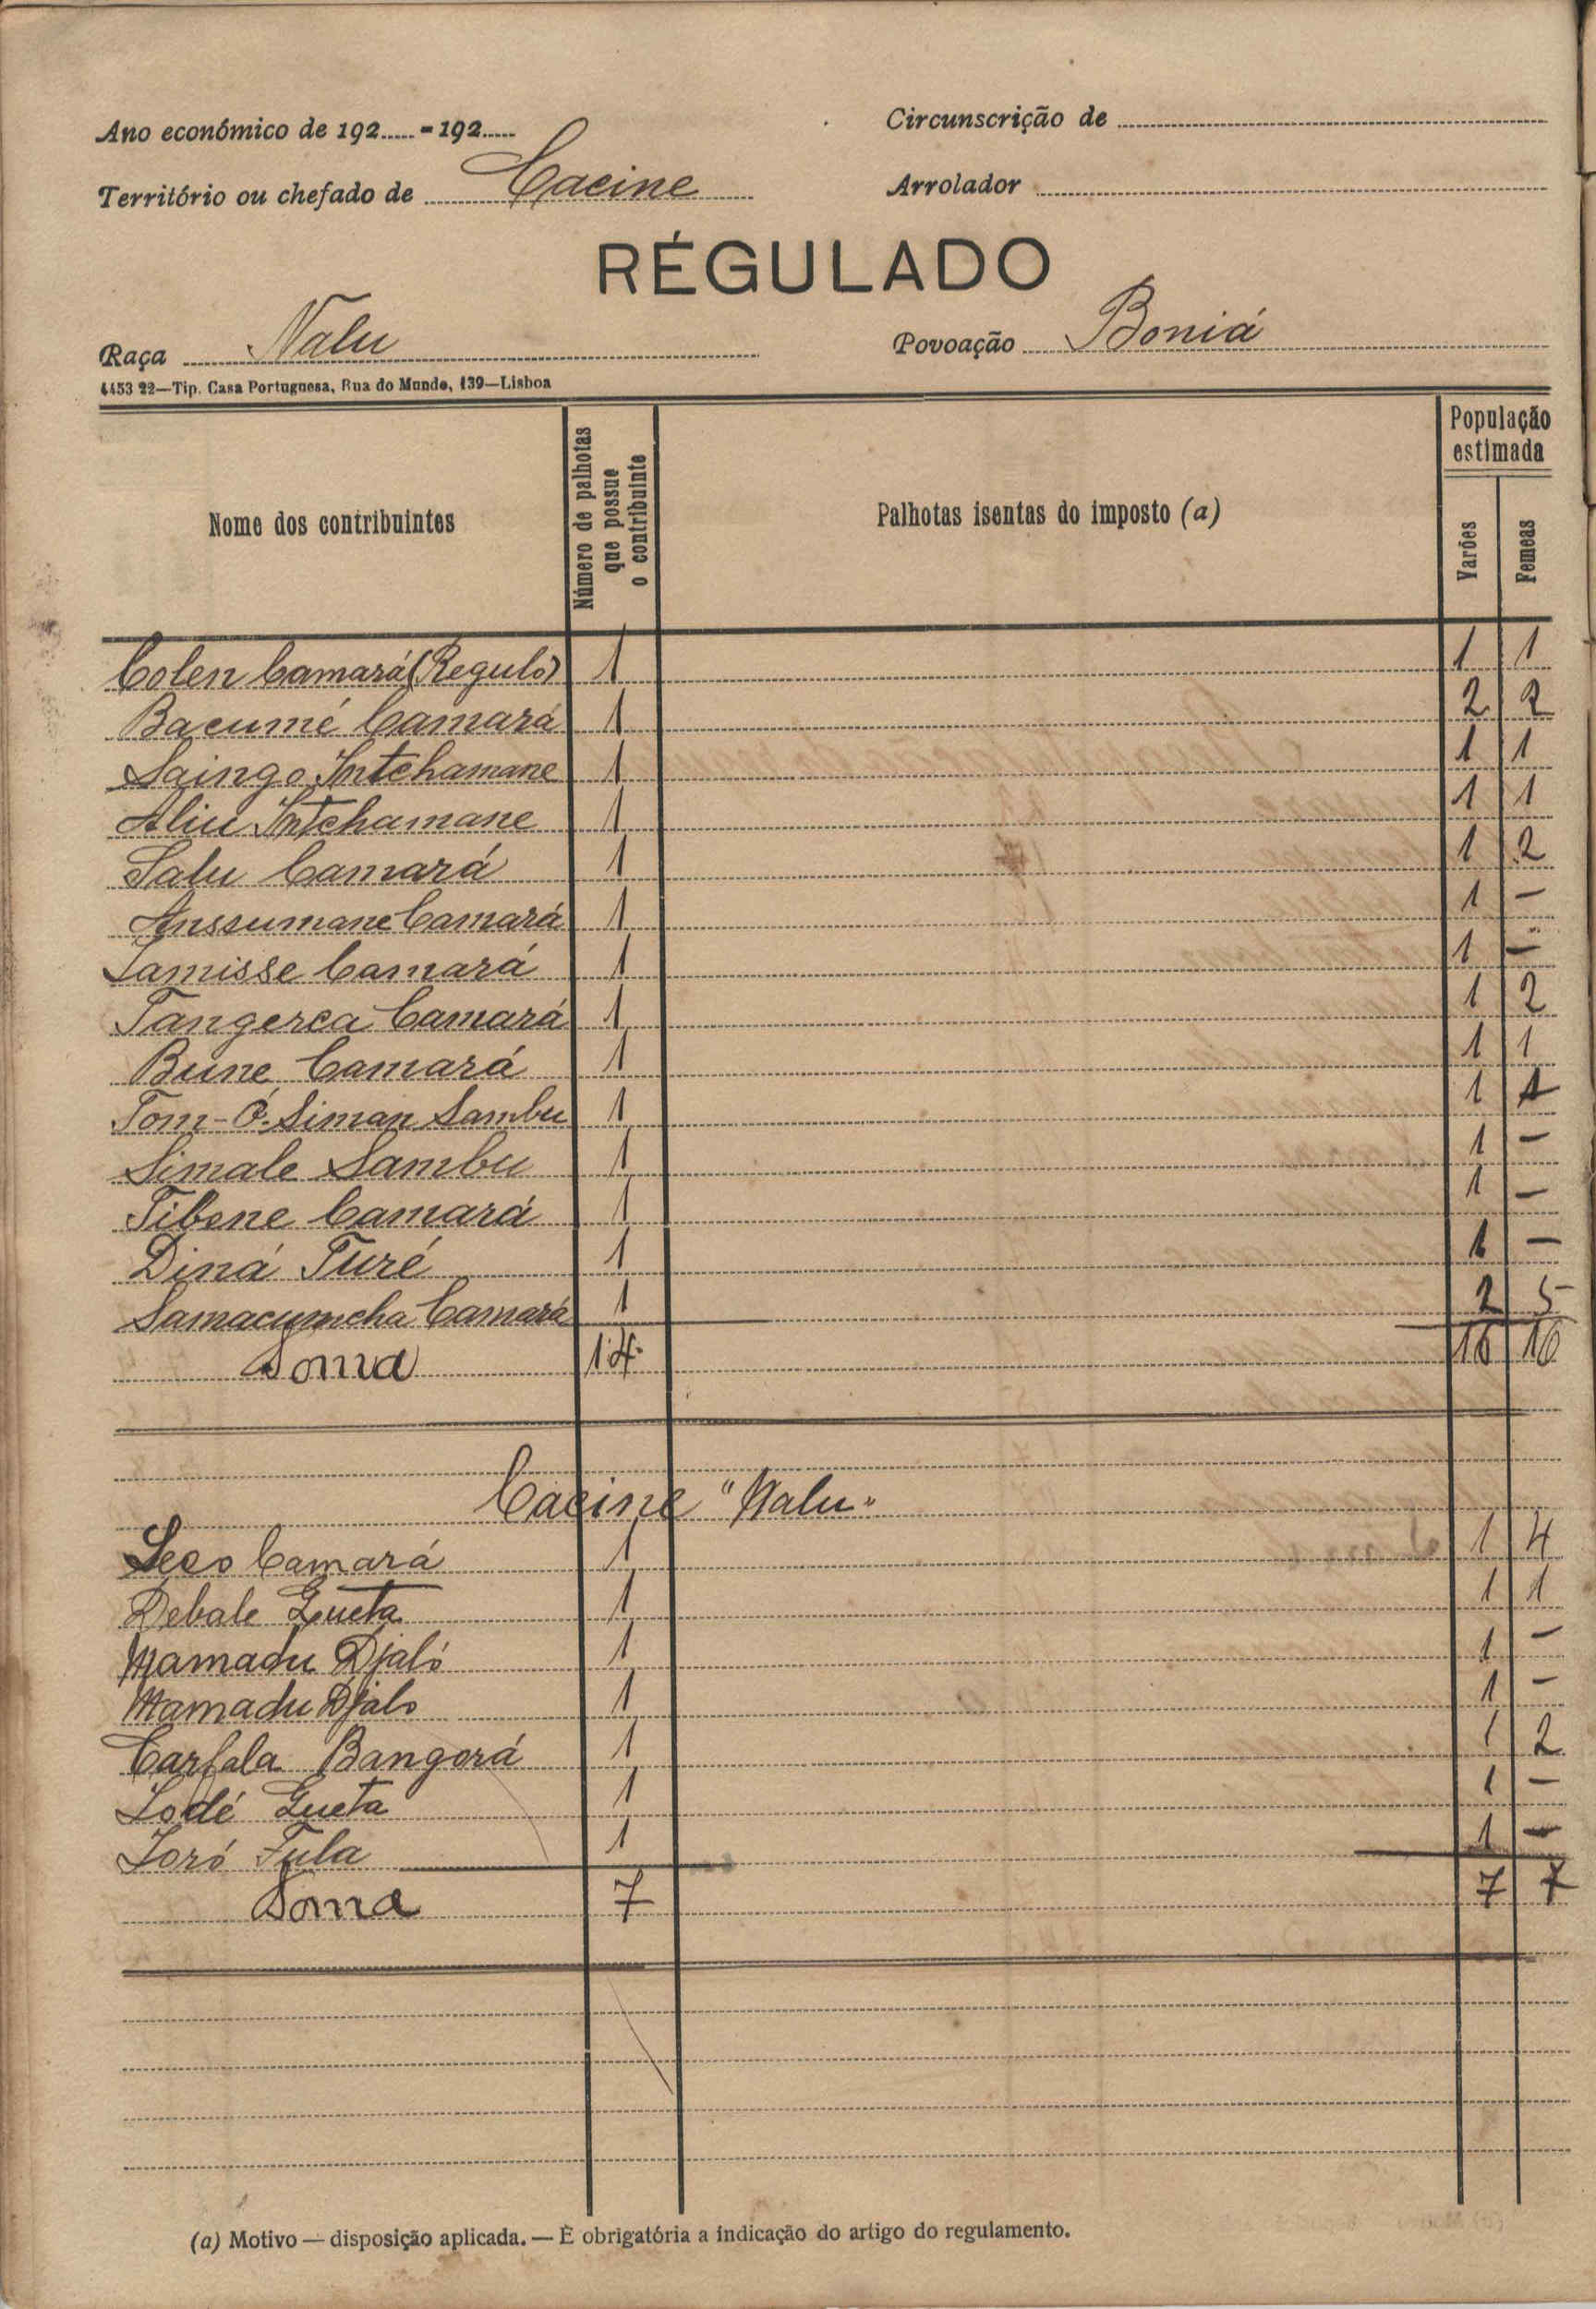 Ano económico de 192..... - 192.....
Circunscrição de
Território ou chefado de Cacine
Arrolador
RÉGULADO
Raça Nalu
Povoação Boniá
4453 22—Tip. Casa Portuguesa, Rua do Mundo, 139—Lisboa
Nome dos contribuintes
Número de palhotas que possue o contribuinte
Palhotas isentas do imposto (a)
População estimada
Varões
Femeas
Colen Camará (Regulo) 1 1 1
Bacumé Camará 1 2 2
Saingo Intchamane 1 1 1
Aliu Intchamane 1 1 1
Salu Camará 1 1 2
Anssumane Camará 1 1 —
Lamisse Camará 1 1 —
Tangerca Camará 1 1 2
Bune Camará 1 1 1
Tom-O-Siman Sambu 1 1 1
Simale Sambu 1 1 —
Tibene Camará 1 1 —
Diná Turé 1 1 —
Samacumcha Camará 1 2 5
Soma 14 16 16
Cacine "Nalu"
Seco Camará 1 1 4
Debale Gueta 1 1 1
Mamadu Djaló 1 1 —
Mamadu Djalo 1 1 —
Carfala Bangorá 1 1 2
Lodé Gueta 1 1 —
Loró Fula 1 1 —
Soma 7 7 7
(a) Motivo — disposição aplicada. — É obrigatória a indicação do artigo do regulamento.